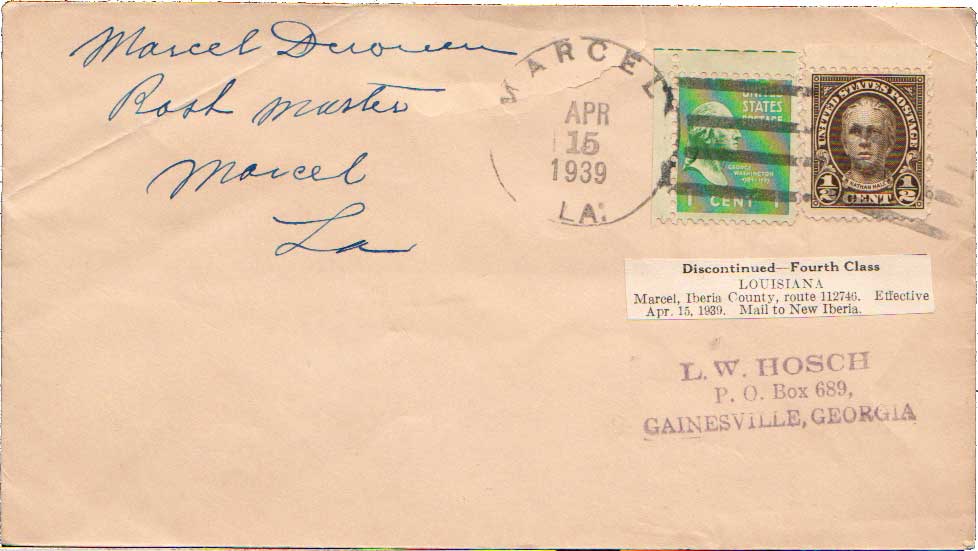 Marcel Derouen
Post Master
Marcel
La
MARCEL
APR
15
1939
LA.
UNITED
STATES
POSTAGE
GEORGE
WASHINGTON
1 CENT 1
UNITED STATES POSTAGE
NATHAN HALE
1/2 CENT 1/2
Discontinued—Fourth Class
LOUISIANA
Marcel, Iberia County, route 112746. Effective
Apr. 15, 1939. Mail to New Iberia.
L. W. HOSCH
P. O. Box 689,
GAINESVILLE, GEORGIA